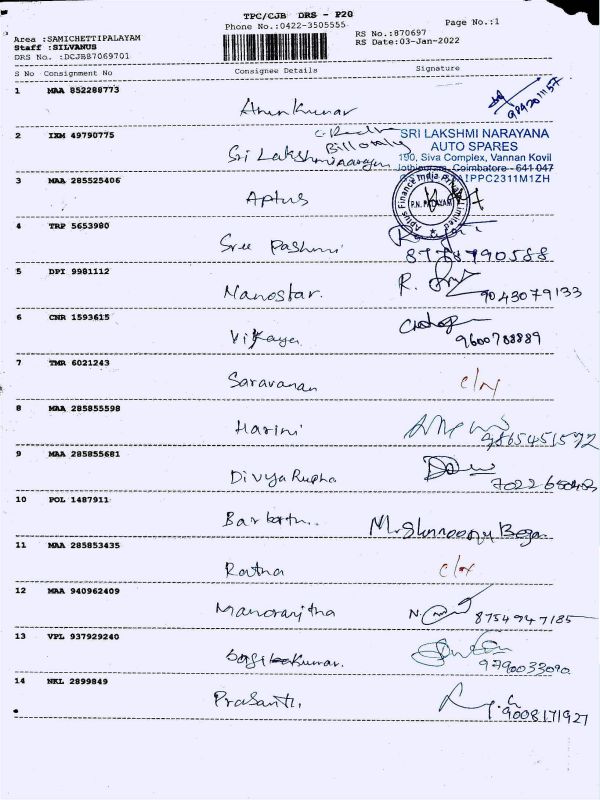 TPC/CJB DRS - P2G
Phone No.:0422-3505555
Page No.:1
Area :SAMICHETTIPALAYAM
Staff :SILVANUS
DRS No. :DCJBB7069701
RS No.:870697
RS Date:03-Jan-2022
S No Consignment No Consignee Details Signature
1 MAA 852288773 Arunkumar
2 IXM 49790775 Sri Lakshminarayan
SRI LAKSHMI NARAYANA
AUTO SPARES
190, Siva Complex, Vannan Kovil
Jothipuram, Coimbatore - 641 047
3 MAA 285525406 Aptus
Aptus Finance India Private Limited
P.N. PALAYAM
4 TRP 5653980 Sree Pashmi
5 DPI 9981112 Manostar. 9043079133
6 CNR 1593615 Vijaya 9600788889
7 TMR 6021243 Saravanan
8 MAA 285855598 Harini
9 MAA 285855681 Divya Rupha
10 POL 1487911
11 MAA 285853435 Ratna
12 MAA 940962409 Manoranjitha 8754947185
13 VPL 937929240 9790033090
14 NKL 2899849 Prasanth. 9008171921